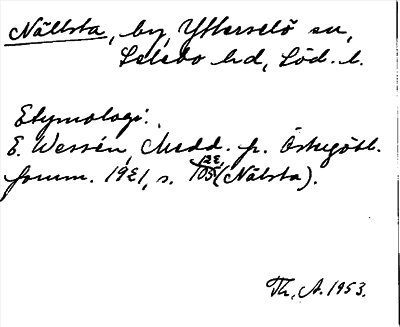 Nällsta, by, Ytterselö sn,
Selebo hd, Söd. l.
Etymologi:
E. Wessén, Medd. fr. Östergötl.
fornm. 1921, s. 105 (Nälsta).
Th. A. 1953.